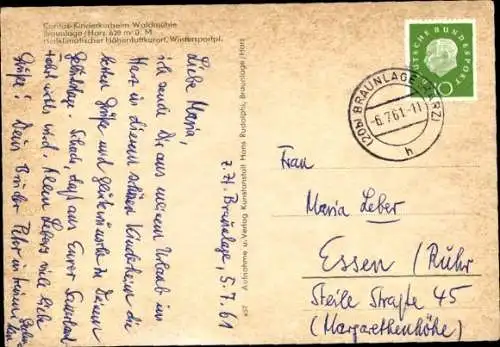 Caritas-Kinderkurheim Waldmühle
Braunlage/Harz 620 m ü. M.
heilklimatischer Höhenluftkurort, Wintersportpl.
z. Zt. Braunlage, 5.7.61
Liebe Maria,
ich sende Dir aus meinem Urlaub im
Harz in diesem schönen Kinderheim die
besten Grüße und Glückwünsche zu Deinem
Geburtstage. Schade, daß aus Eurer
nichts wird. Allen Lebers viele liebe
Grüße! Dein Bruder
Aufnahme u. Verlag Kunstanstalt Hans Rudolphi, Braunlage/Harz
DEUTSCHE BUNDESPOST
10
(20b) BRAUNLAGE (HARZ)
-6.7.61.-11
h
Frau
Maria Leber
Essen / Ruhr
Steile Straße 45
(Margarethenhöhe)